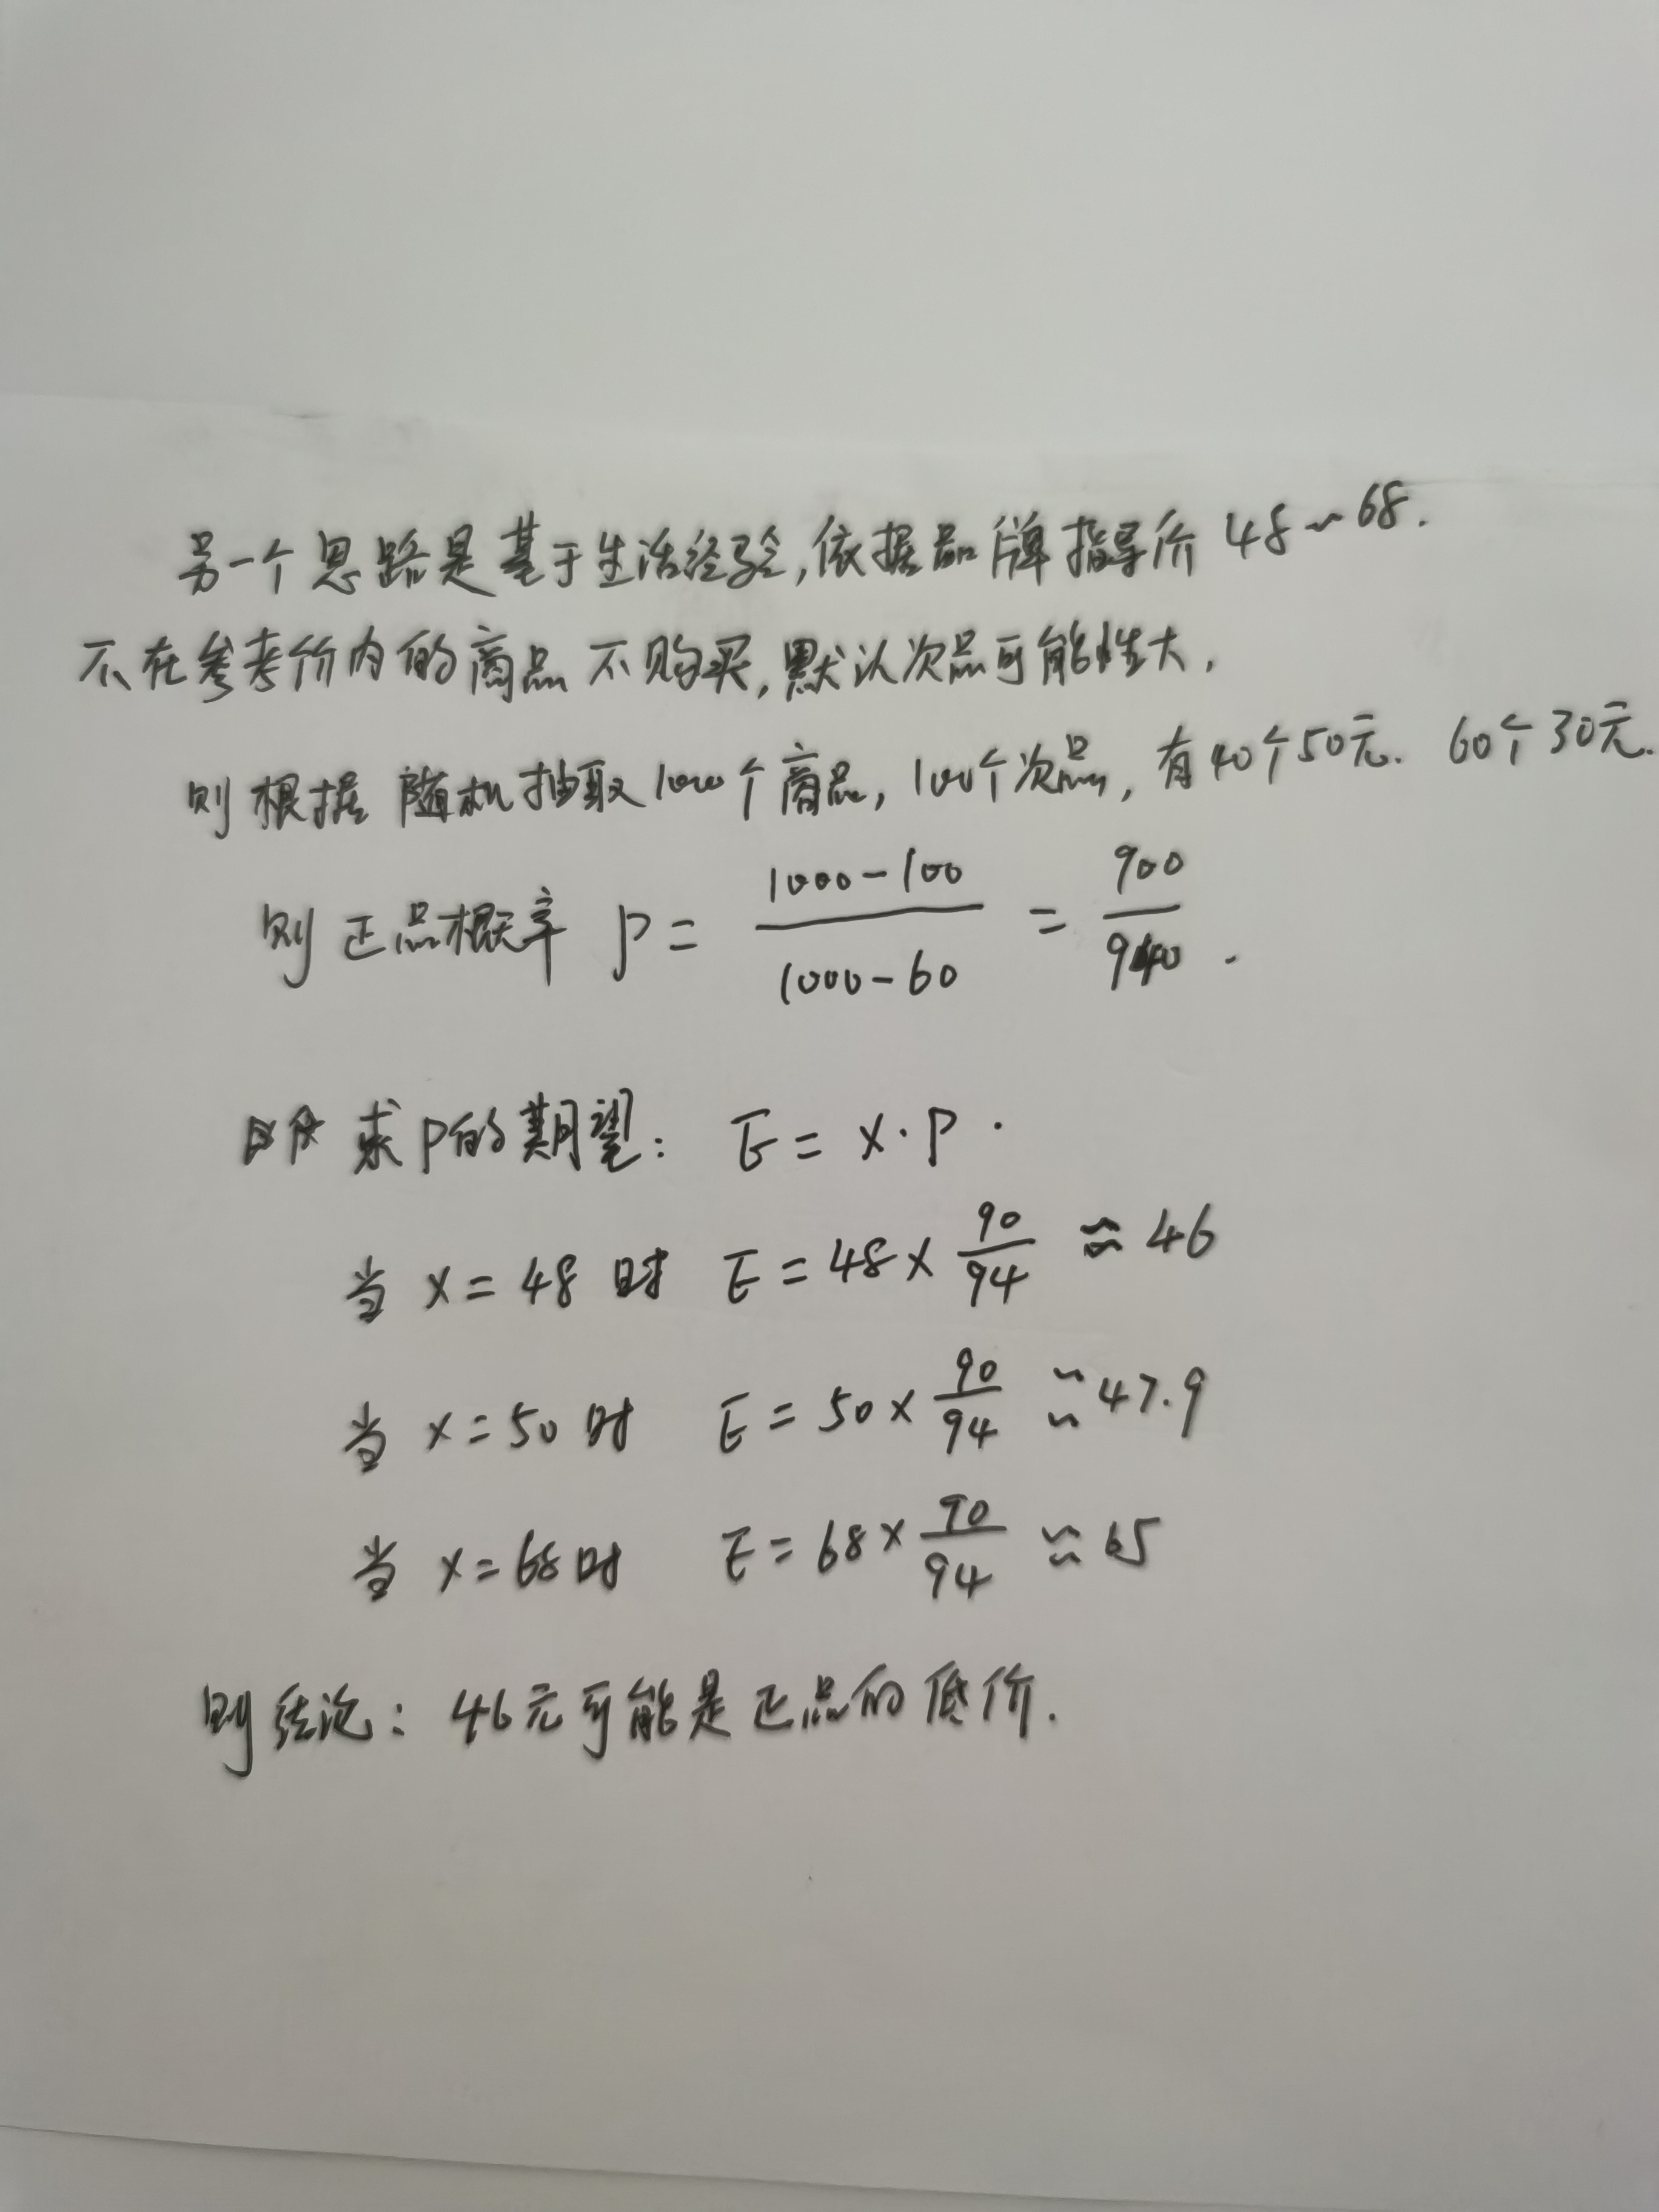 另一个思路是基于生活经验,依据品牌指导价 48~68.
不在参考价内的商品不购买,默认次品可能性大,
则根据 随机抽取1000个商品,100个次品,有40个50元. 60个30元.
则正品概率 P = (1000-100)/(1000-60) = 900/940 .
求P的期望: E = x·P ·
当 x = 48 时 E = 48 × 90/94 ≈ 46
当 x = 50 时 E = 50 × 90/94 ≈ 47.9
当 x = 68 时 E = 68 × 90/94 ≈ 65
则结论: 46元可能是正品的低价.